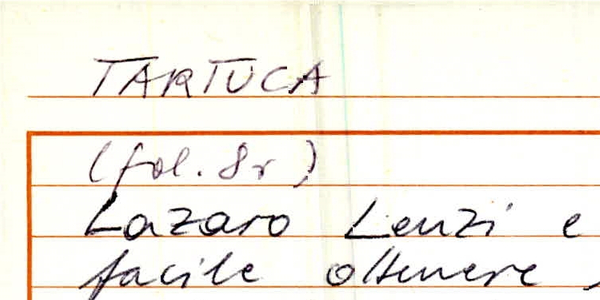 TARTUCA
(fol. 8r)
Lazaro Lenzi e
facile ottenere